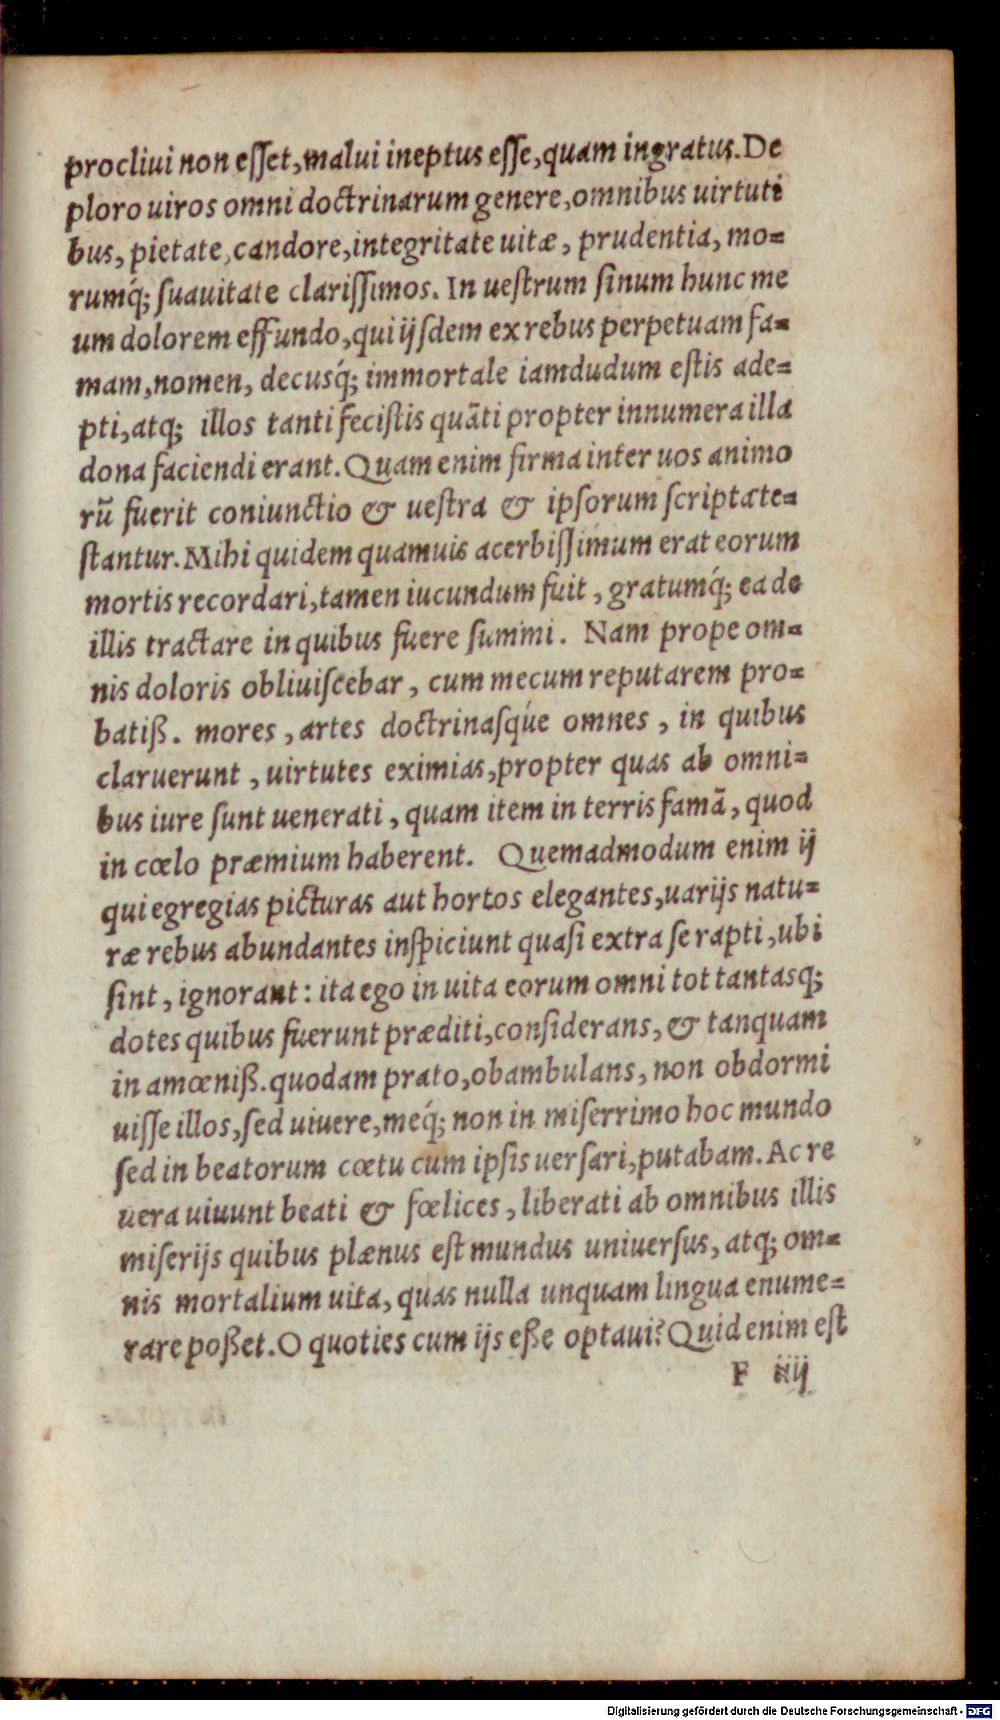 procliui non eſſet, malui ineptus eſſe, quam ingratus. De
ploro uiros omni doctrinarum genere, omnibus uirtuti
bus, pietate, candore, integritate uitæ, prudentia, mo⸗
rumq́; ſuauitate clariſſimos. In ueſtrum ſinum hunc me
um dolorem effundo, qui ijſdem ex rebus perpetuam fa⸗
mam, nomen, decusq́; immortale iamdudum eſtis ade⸗
pti, atq; illos tanti feciſtis quāti propter innumera illa
dona faciendi erant. Quam enim firma inter uos animo
rū fuerit coniunctio & ueſtra & ipſorum ſcripta te⸗
ſtantur. Mihi quidem quamuis acerbiſſimum erat eorum
mortis recordari, tamen iucundum fuit, gratumq́; ea de
illis tractare in quibus fuere ſummi. Nam prope om⸗
nis doloris obliuiſcebar, cum mecum reputarem pro⸗
batiß. mores, artes doctrinaſq́ue omnes, in quibus
claruerunt, uirtutes eximias, propter quas ab omni⸗
bus iure ſunt uenerati, quam item in terris famā, quod
in cœlo præmium haberent. Quemadmodum enim ij
qui egregias picturas aut hortos elegantes, uarijs natu⸗
ræ rebus abundantes inſpiciunt quaſi extra ſe rapti, ubi
ſint, ignorant: ita ego in uita eorum omni tot tantasq;
dotes quibus fuerunt præditi, conſiderans, & tanquam
in amœniß. quodam prato, obambulans, non obdormi
uiſſe illos, ſed uiuere, meq́; non in miſerrimo hoc mundo
ſed in beatorum cœtu cum ipſis uerſari, putabam. Ac re
uera uiuunt beati & fœlices, liberati ab omnibus illis
miſerijs quibus plænus eſt mundus uniuerſus, atq; om⸗
nis mortalium uita, quas nulla unquam lingua enume⸗
rare poßet. O quoties cum ijs eße optaui? Quid enim eſt
F iiij
Digitalisierung gefördert durch die Deutsche Forschungsgemeinschaft - DFG